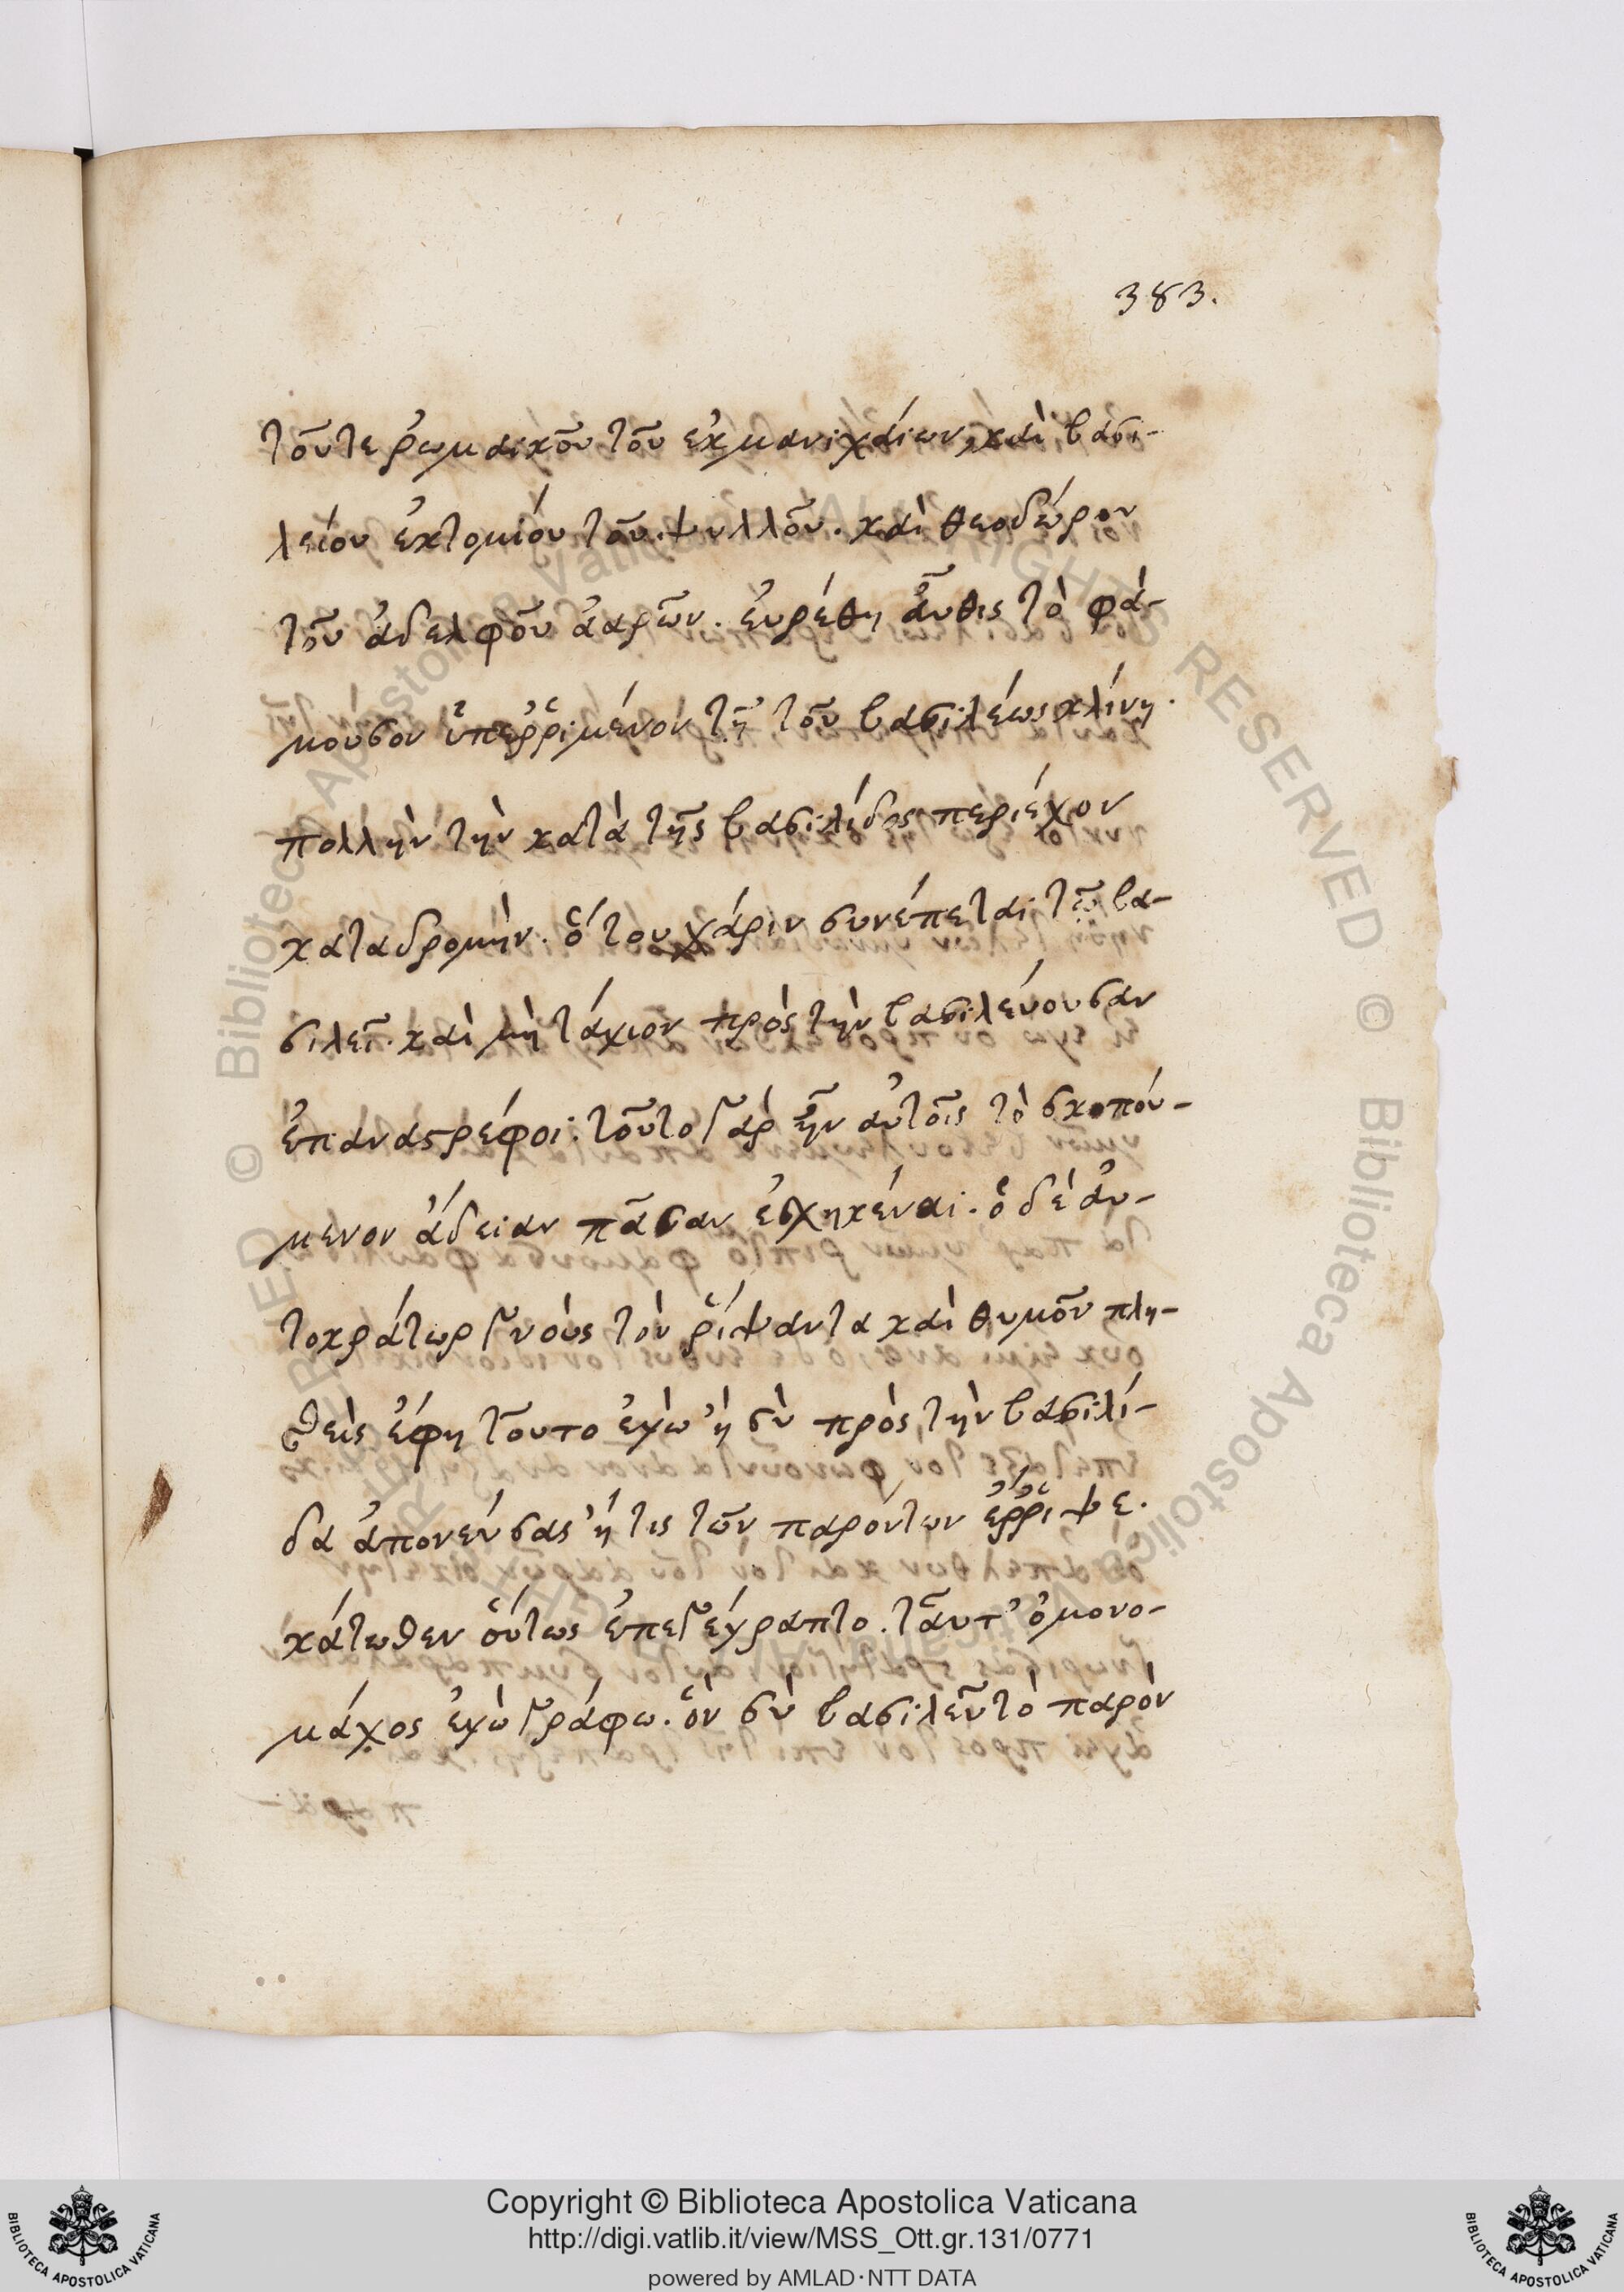 383.
τοῦτε ῥωμαικοῦ τοῦ ἐκμανιχαίων, καὶ βασι-
λείου ἐκτομίου τοῦ. ψυλλοῦ. καὶ θεοδώρου
τοῦ ἀδελφοῦ ἀαρῶν. ἐυρέθη ἆυθις τὸ φά-
μουσον ὑπεῤῥιμένον τῆ τοῦ βασιλέως κλίνη.
πολλὴν τὴν κατὰ τῆς βασιλίδος περιέχον
καταδρομὴν. ὅτου χάριν συνέπεται τῶ βα-
σιλεῖ. καὶ μὴ τάχιον πρὸς τὴν βασιλέυουσαν
ἐπαναστρέφοι. τοῦτο γὰρ ἦν αὐτοῖς τὸ σκοπόυ-
μενον ἄδειαν πᾶσαν ἐσχηκέναι. ὁ δὲ ἀυ-
τοκράτωρ γνοὺς τὸν ῥίψαντα καὶ θυμοῦ πλη-
σθεὶς ἔφη τοῦτο ἐγὼ ἢ σὺ πρὸς τὴν βασιλί-
δα ἀπονεύσας ἤ τις τῶν παρόντων ἔῤῥιψε.
κάτωθεν οὕτως ἐπεγέγραπτο. ταῦτ' ὁ μονο-
μάχος ἐγὼ γράφω. ὃν σὺ βασιλεῦ τὸ παρὸν
Copyright © Biblioteca Apostolica Vaticana
http://digi.vatlib.it/view/MSS_Ott.gr.131/0771
powered by AMLAD・NTT DATA
BIBLIOTECA APOSTOLICA VATICANA
BIBLIOTECA APOSTOLICA VATICANA